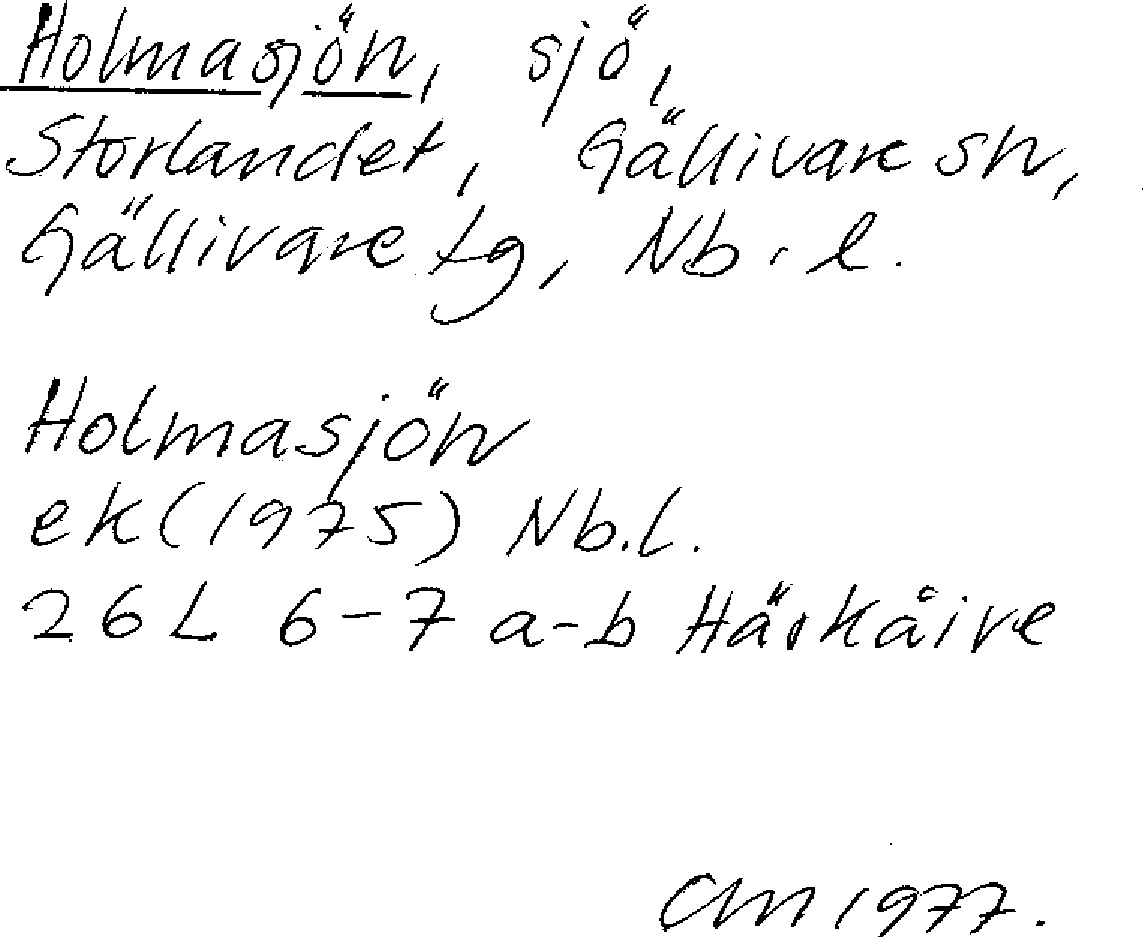 Holmasjön, sjö,
Storlandet, Gällivare sn,
Gällivare tg, Nb. l.
Holmasjön
ek (1975) Nb.l.
26 L 6-7 a-b Härkåive
CM 1977.